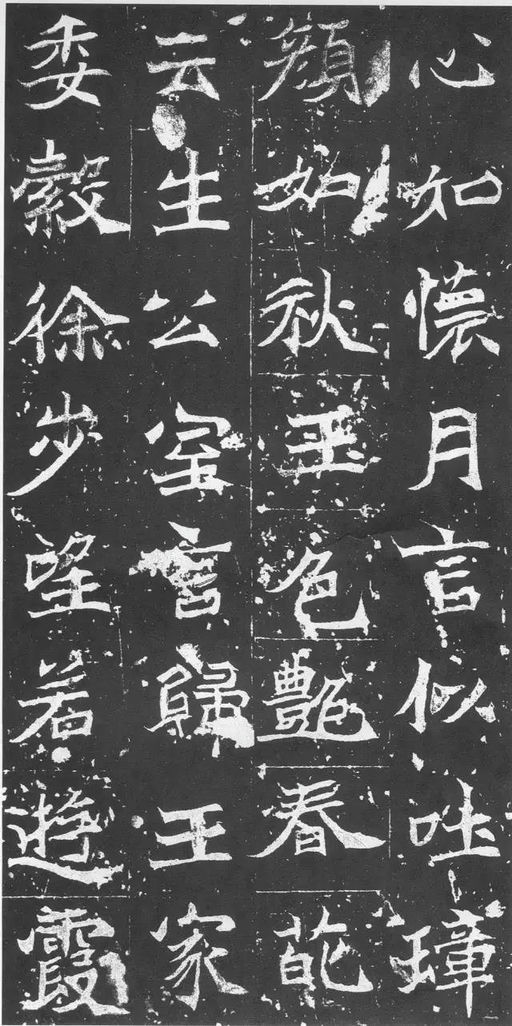 心如懷月言似吐璋
顔如秋玉色艷春葩
云生公室言歸王家
委縠徐步望若遊霞